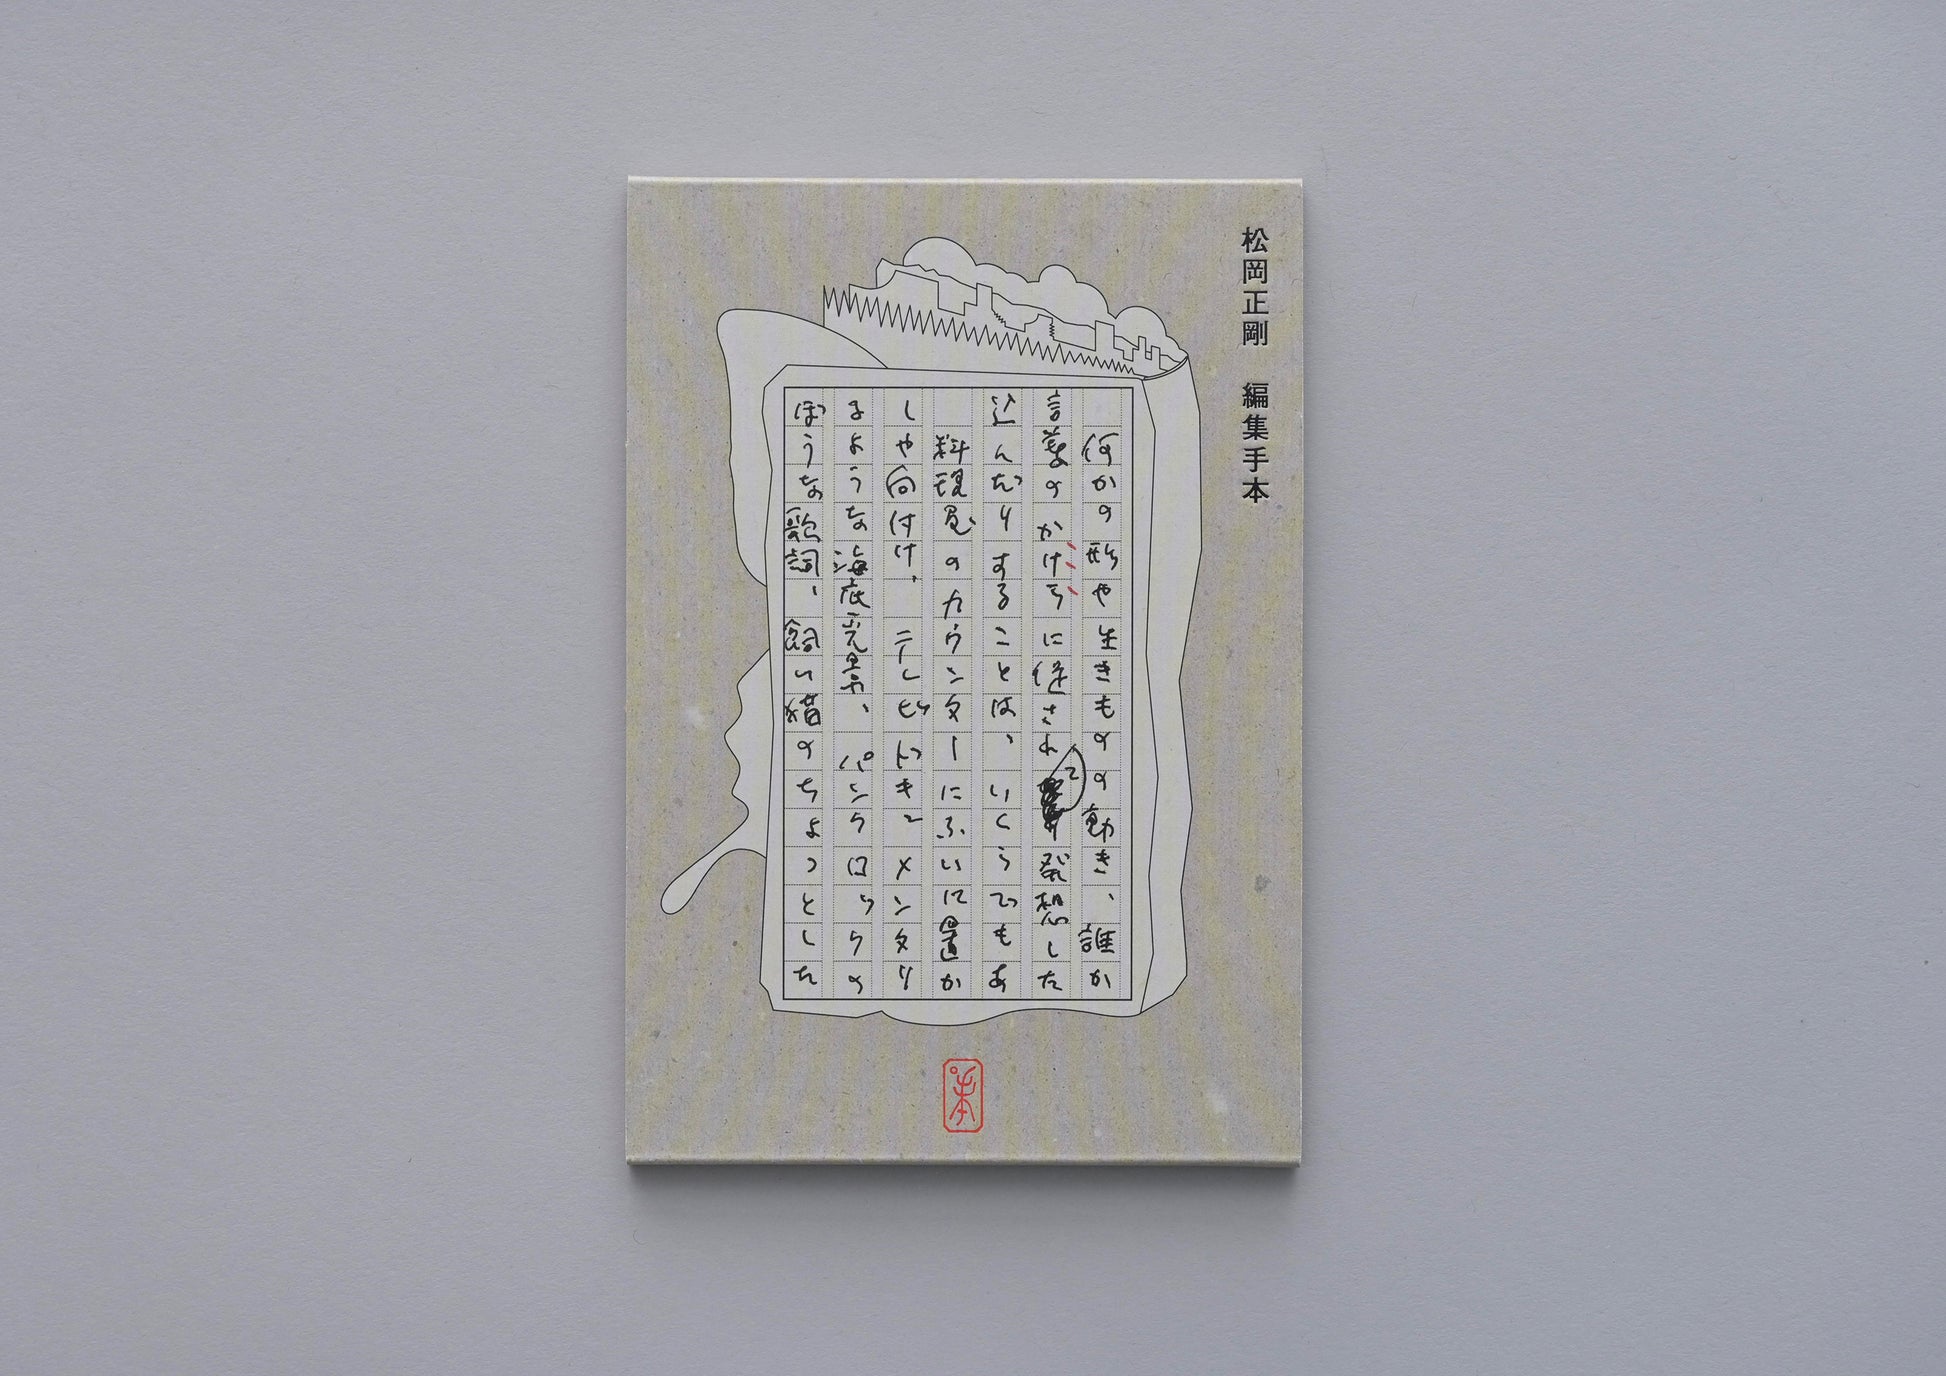 松岡正剛　編集手本
何かの形や生きものの動き、誰か
言葉のかけらに促されて発想した
込んだりすることは、いくらでもあ
料理屋のカウンターにふいに置か
しや向付け、テレビドキュメンタリ
るような海底光景や、パンクロックの
ぼうな歌詞、飼い猫のちょっとした